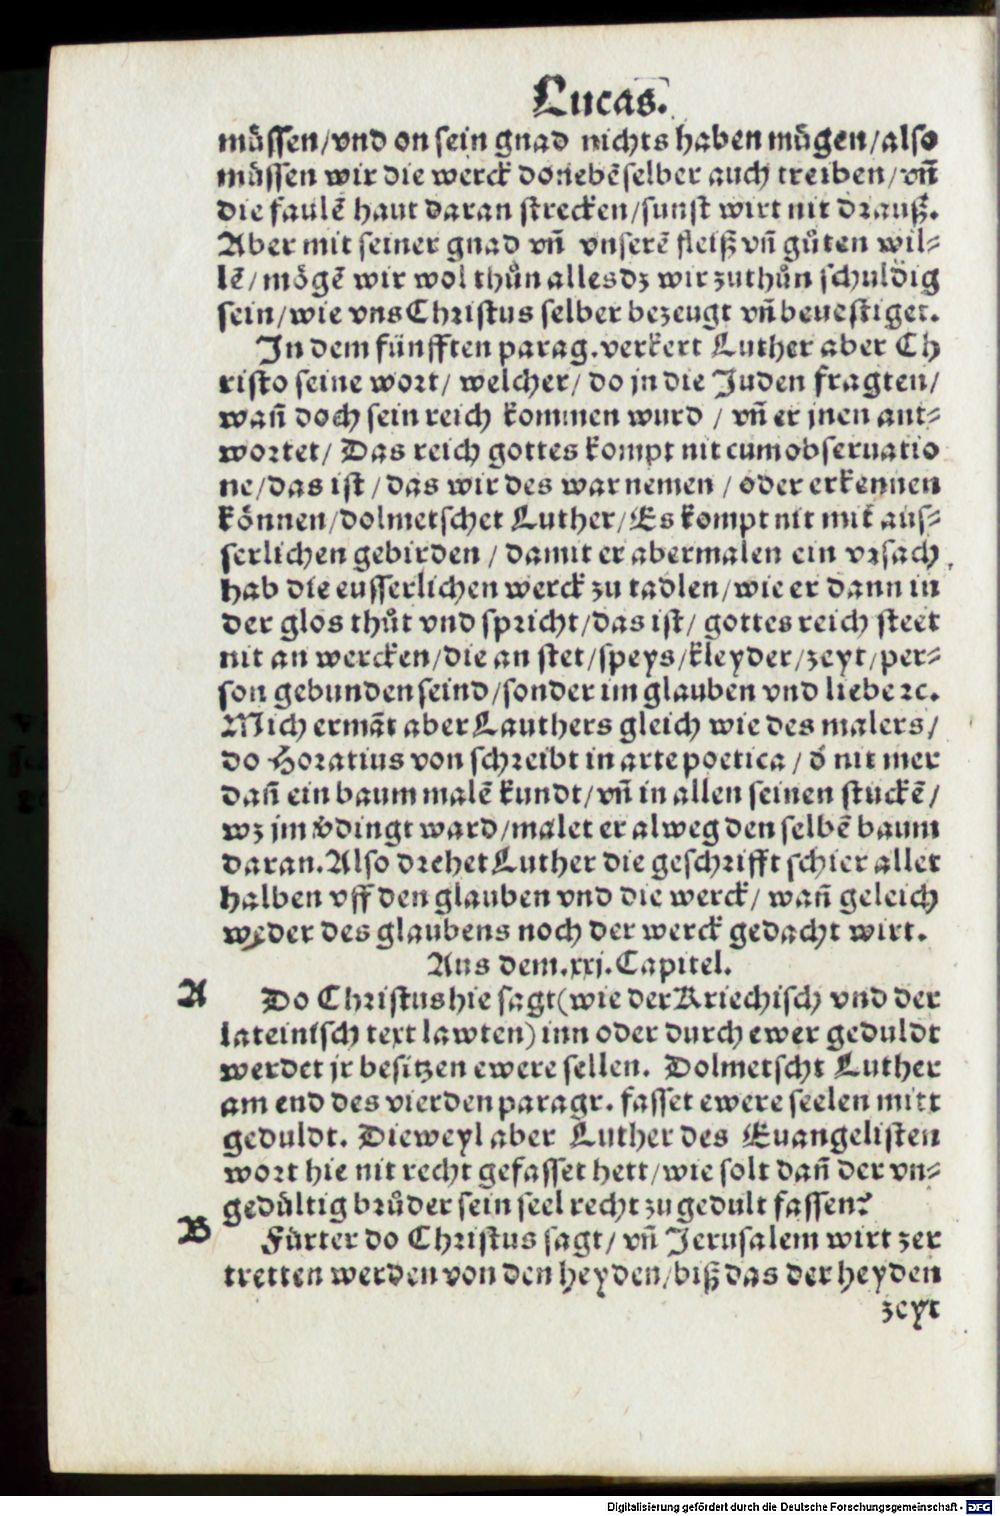 Lucas.
müssen/vnd on sein gnad nichts haben mügen/also
müssen wir die werck donebē selber auch treiben/vñ
die faulē haut daran strecken/sunst wirt nit drauß.
Aber mit seiner gnad vñ vnserē fleiß vñ gůten wil⸗
lē/mögē wir wol thůn alles dz wir zuthůn schuldig
sein/wie vns Christus selber bezeugt vñ beuestiget.
In dem fünfften parag.verkert Luther aber Ch
risto seine wort/ welcher/ do jn die Juden fragten/
wañ doch sein reich kommen wurd / vñ er jnen ant⸗
wortet/ Das reich gottes kompt nit cum obseruatio
ne/das ist /das wir des war nemen / oder erkennen
können/dolmetschet Luther/Es kompt nit mit aus⸗
serlichen gebirden / damit er abermalen ein vrsach
hab die eusserlichen werck zu tadlen/wie er dann in
der glos thůt vnd spricht/das ist/ gottes reich steet
nit an wercken/die an stet/speys/kleyder/zeyt/per⸗
son gebunden seind/sonder im glauben vnd liebe ꝛc.
Mich ermāt aber Lauthers gleich wie des malers/
do Horatius von schreibt in arte poetica / d̄ nit mer
dañ ein baum malē kundt/vñ in allen seinen stuckē/
wz jm v̄dingt ward/malet er alweg den selbē baum
daran.Also drehet Luther die geschrifft schier allet
halben vff den glauben vnd die werck/ wañ geleich
weder des glaubens noch der werck gedacht wirt.
Aus dem.xxj.Capitel.
A Do Christus hie sagt(wie der Kriechisch vnd der
lateinisch text lawten)inn oder durch ewer geduldt
werdet jr besitzen ewere sellen. Dolmetscht Luther
am end des vierden paragr. fasset ewere seelen mitt
geduldt. Dieweyl aber Luther des Euangelisten
wort hie nit recht gefasset hett/wie solt dañ der vn⸗
gedültig brůder sein seel recht zu gedult fassen?
B Fürter do Christus sagt/ vñ Jerusalem wirt zer
tretten werden von den heyden/biß das der heyden
zeyt
Digitalisierung gefördert durch die Deutsche Forschungsgemeinschaft - DFG